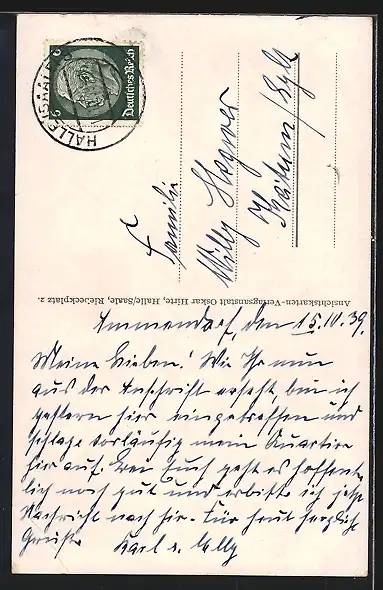 HALLE (SAALE)
Deutsches Reich
6
6
Familie
Willy Hagner
Keitum / Sylt
Ansichtskarten-Verlagsanstalt Oskar Hirte, Halle/Saale, Riebeckplatz 2.
Ammendorf, den 15.10.39.
Meine Lieben! Wie Ihr nun
aus der Anschrift erseht, bin ich
gestern hier eingetroffen und
schlage vorläufig mein Quartier
hier auf. Bei Euch geht es hoffent-
lich noch gut und erbitte ich jetzt
Nachricht nach hier. Für heut herzliche
Grüße Karl u. Elly